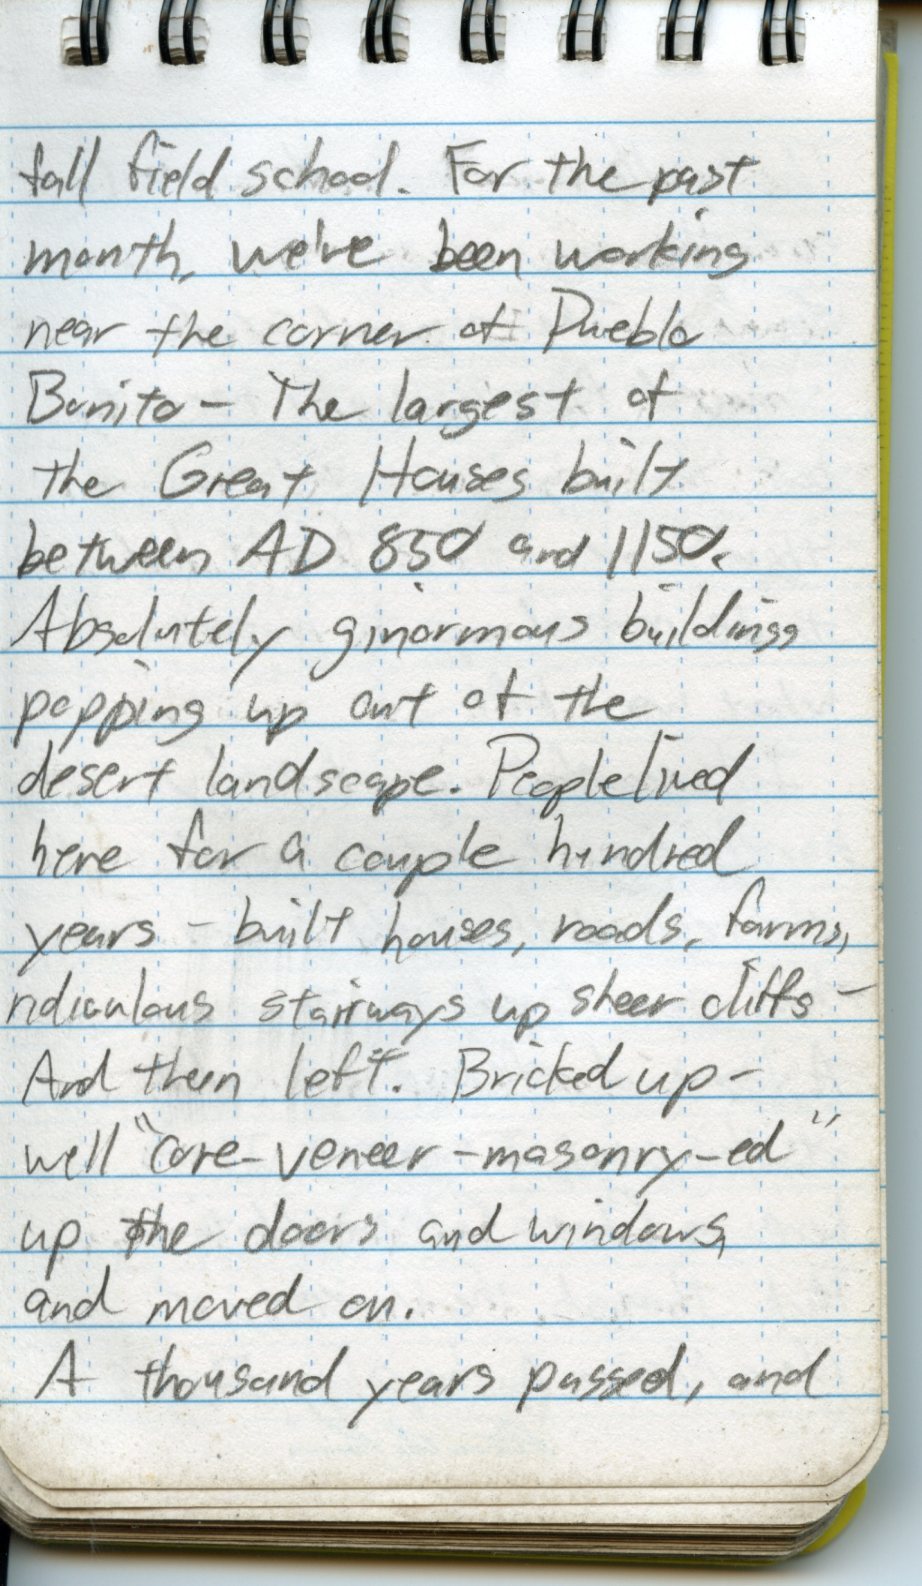 fall field school. For the past
month, we've been working
near the corner of Pueblo
Bonito – The largest of
the Great Houses built
between AD 850 and 1150.
Absolutely ginormous buildings
popping up out of the
desert landscape. People lived
here for a couple hundred
years – built houses, roads, farms,
ridiculous stairways up sheer cliffs –
And then left. Bricked up –
well "core-veneer-masonry-ed"
up the doors and windows,
and moved on.
A thousand years passed, and